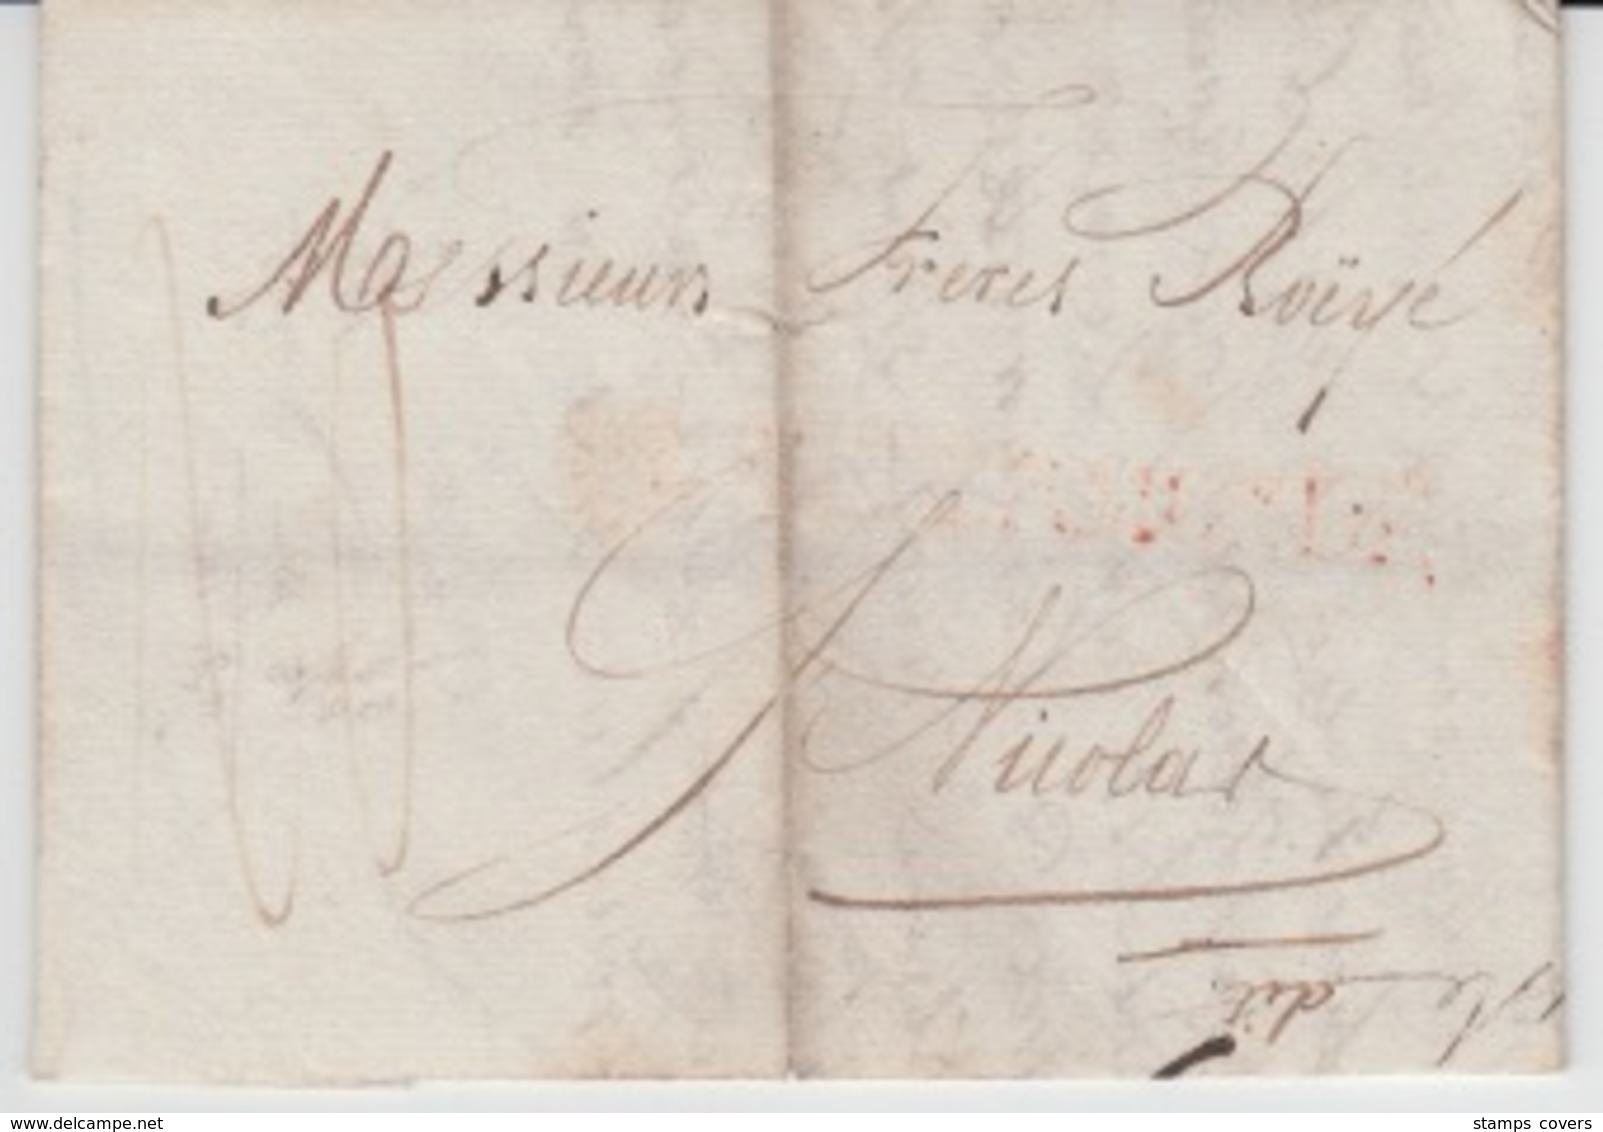 Messieurs Freres Roëyé
Nicolas
dit
www.delcampe.net
stamps covers